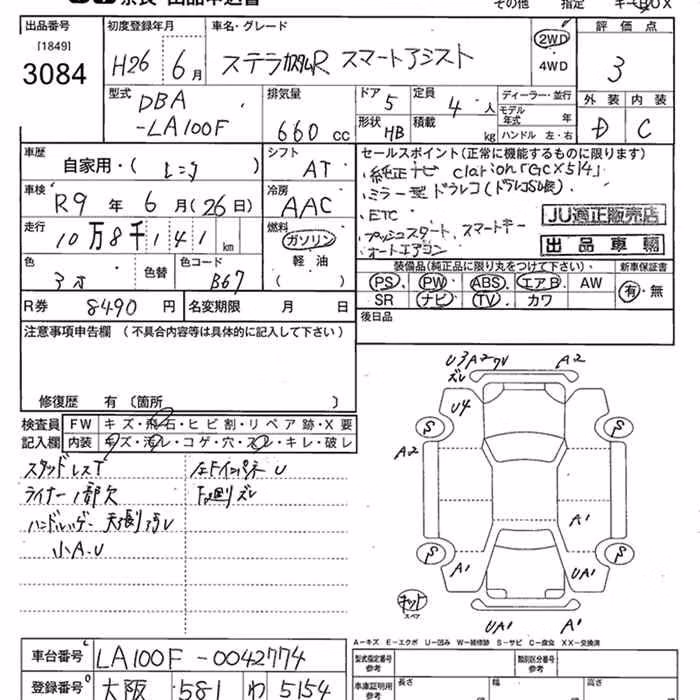 その他 指定 キーBOX
出品番号 初度登録年月 車名・グレード 2WD 評価点
[1849]
3084 H26 6月 ステラカスタムR スマートアシスト 4WD 3
型式 排気量 ドア 定員 ディーラー・並行 外装 内装
DBA 5 4人 モデル年式 年
-LA100F 660cc 形状 HB 積載 kg ハンドル 左・右 D C
車歴 シフト セールスポイント(正常に機能するものに限ります)
自家用・( ) AT ・純正ナビ clarion「GCX514」
車検 冷房 ・ミラー型ドラレコ
R9年 6月(26日) AAC ・ETC JU適正販売店
走行 燃料 ・プッシュスタート、スマートキー
10万8千141km ガソリン ・オートエアコン 出品車輌
色 色替 色コード 軽油 装備品(純正品に限り丸をつけて下さい) 新車保証書
B67 ( ) PS PW ABS エアB AW 有・無
R券 8490円 名変期限 月 日 SR ナビ TV カワ
注意事項申告欄 (不具合内容等は具体的に記入して下さい) 後日品
修復歴 有 〔箇所 〕
検査員 FW キズ・飛石・ヒビ割・リペア跡・X要
記入欄 内装 キズ・汚レ・コゲ・穴・スレ・キレ・破レ
スタッドレスT 左Fインパネ U
ライナー1部欠 F廻りズレ
天張汚レ
小A.U
U3 A2 A2
ズレ
U4
S S
A2
A1
S S
A1 UA1
スペア
UA1 A1
A-キズ E-エクボ U-凹み W-補修跡 S-サビ C-腐食 XX-交換済
車台番号 LA100F-0042774 型式指定番号 類別区分番号
参考 参考
登録番号 大阪 581 わ 5154 車庫証明用参考 長さ 幅 高さ